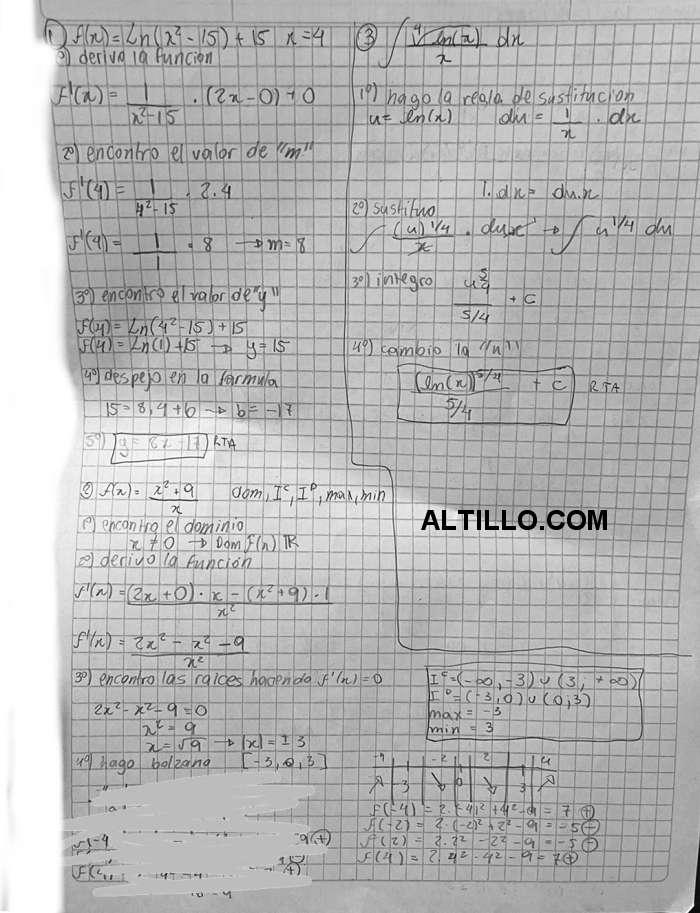 ① f(x) = Ln(x² - 15) + 15 x=4
1º) derivo la función
f'(x) = 1/(x²-15) · (2x-0) + 0
2º) encontro el valor de "m"
f'(4) = 1/(4²-15) · 2.4
f'(4) = 1/1 · 8 → m=8
3º) encontro el valor de "y"
f(4) = Ln(4²-15) + 15
f(4) = Ln(1) + 15 → y = 15
4º) despejo en la formula
15 = 8.4 + b → b = -17
5º) y = 8x - 17 RTA
② f(x) = (x²+9)/x dom, Iᶜ, Iᴰ, max, min
1º) encontro el dominio
x ≠ 0 → Dom f(x) ℝ
2º) derivo la función
f'(x) = ((2x+0) · x - (x²+9) · 1)/x²
f'(x) = (2x² - x² - 9)/x²
3º) encontro las raices haciendo f'(x)=0
2x² - x² - 9 = 0
x² = 9
x = √9 → |x| = ± 3
4º) hago bolzano [-3, 0, 3]
③ ∫ ⁴√ln(x)/x dx
1º) hago la regla de sustitucion
u = ln(x) du = 1/x · dx
1. dx = du.x
2º) sustituo
∫ (u)^1/4/x · du.x → ∫ u^1/4 du
3º) integro u^5/4/(5/4) + C
4º) cambio la "u"
(ln(x))^5/4/(5/4) + C RTA
ALTILLO.COM
Iᶜ = (-∞, -3) ∪ (3, +∞)
Iᴰ = (-3, 0) ∪ (0, 3)
max = -3
min = 3
-4 -2 2 4
-3 0 3
f(-4) = 2.(-4)² + 4² - 9 = 7 ⊕
f(-2) = 2.(-2)² + 2² - 9 = -5 ⊖
f(2) = 2.2² - 2² - 9 = -5 ⊖
f(4) = 2.4² - 4² - 9 = 7 ⊕